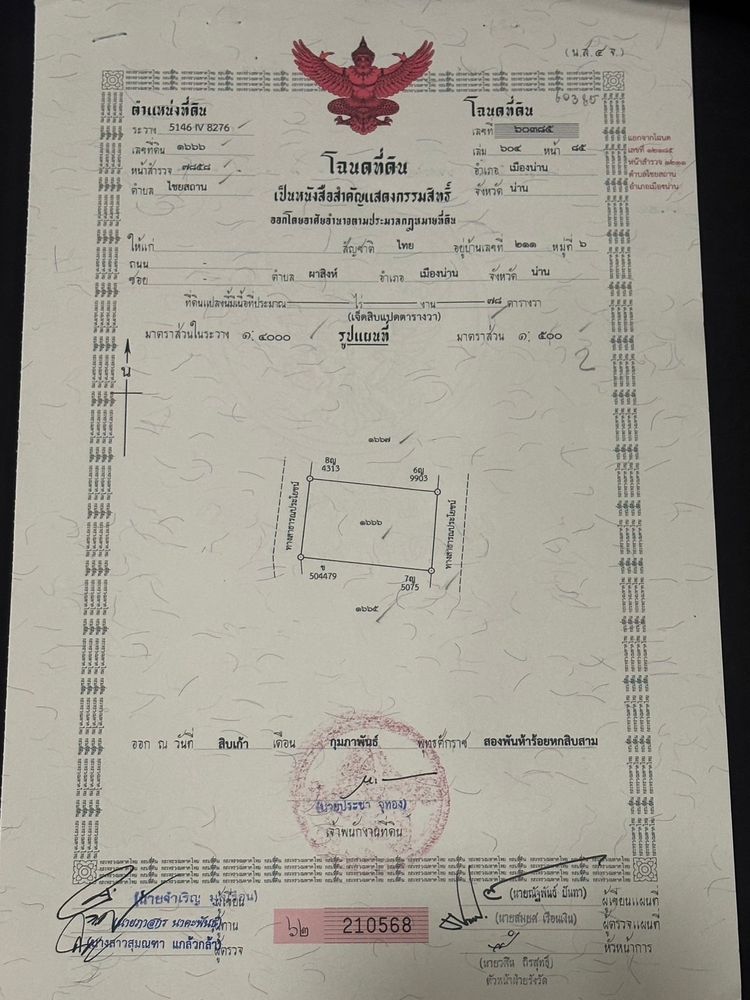 (น.ส.๔ จ.)
60385
ตำแหน่งที่ดิน
ระวาง 5146 IV 8276
เลขที่ดิน ๑๖๖๖
หน้าสำรวจ ๗๘๕๘
ตำบล ไชยสถาน
โฉนดที่ดิน
เลขที่ ๖๐๓๘๕
เล่ม ๖๐๔ หน้า ๘๕
อำเภอ เมืองน่าน
จังหวัด น่าน
แยกจากโฉนด
เลขที่ ๑๒๑๘๕
หน้าสำรวจ ๑๒๑๑
ตำบลไชยสถาน
อำเภอเมืองน่าน
โฉนดที่ดิน
เป็นหนังสือสำคัญแสดงกรรมสิทธิ์
ออกโดยอาศัยอำนาจตามประมวลกฎหมายที่ดิน
ให้แก่ สัญชาติ ไทย อยู่บ้านเลขที่ ๒๑๑ หมู่ที่ ๖
ถนน -
ซอย - ตำบล ผาสิงห์ อำเภอ เมืองน่าน จังหวัด น่าน
ที่ดินแปลงนี้มีเนื้อที่ประมาณ ไร่ งาน ๗๘ ตารางวา
(เจ็ดสิบแปดตารางวา)
มาตราส่วนในระวาง ๑: ๔๐๐๐ รูปแผนที่ มาตราส่วน ๑: ๕๐๐
2
น
๑๖๖๗
8ญ
4313
6ญ
9903
ทางสาธารณประโยชน์
๑๖๖๖
ทางสาธารณประโยชน์
ข
504479
7ญ
5075
๑๖๖๕
ออก ณ วันที่ สิบเก้า เดือน กุมภาพันธ์ พุทธศักราช สองพันห้าร้อยหกสิบสาม
(นายประชา จุทอง)
เจ้าพนักงานที่ดิน
(นายจำเริญ
ผู้เขียน
ผู้ทาน
(นางสาวสุมณฑา แกล้วกล้า)
ผู้ตรวจ
๖๒ 210568
(นายณัฐพันธ์ ปันทา) ผู้เขียนแผนที่
(นายสมยศ เรือนเงิน) ผู้ตรวจแผนที่
หัวหน้าการ
(นายวศิน ถิรสุทธิ์)
หัวหน้าฝ่ายรังวัด